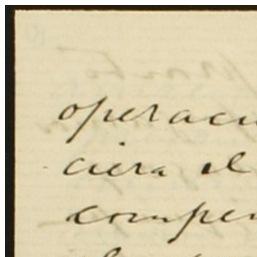 operaci
ciera el
compen